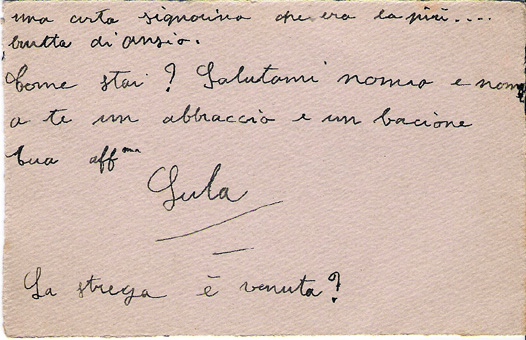 una certa signorina che era la più....
brutta di Ansio.
Come stai? Salutami nonno e nonn
a te un abbraccio e un bacione
tua aff.ma
Lula
La strega è venuta?